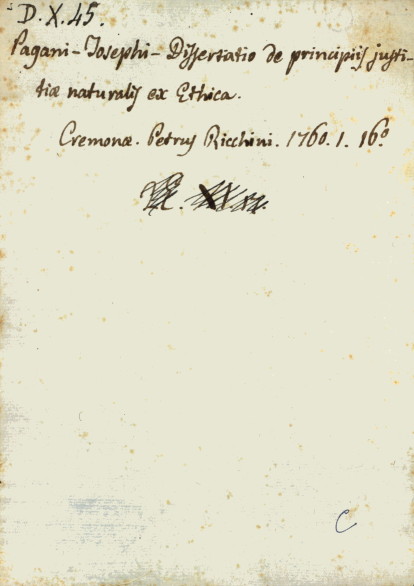 D. X. 45.
Pagani - Josephi - Dissertatio de principiis justi-
tiæ naturalis ex Ethica.
Cremonæ. Petrus Ricchini. 1760. 1. 16.º
C